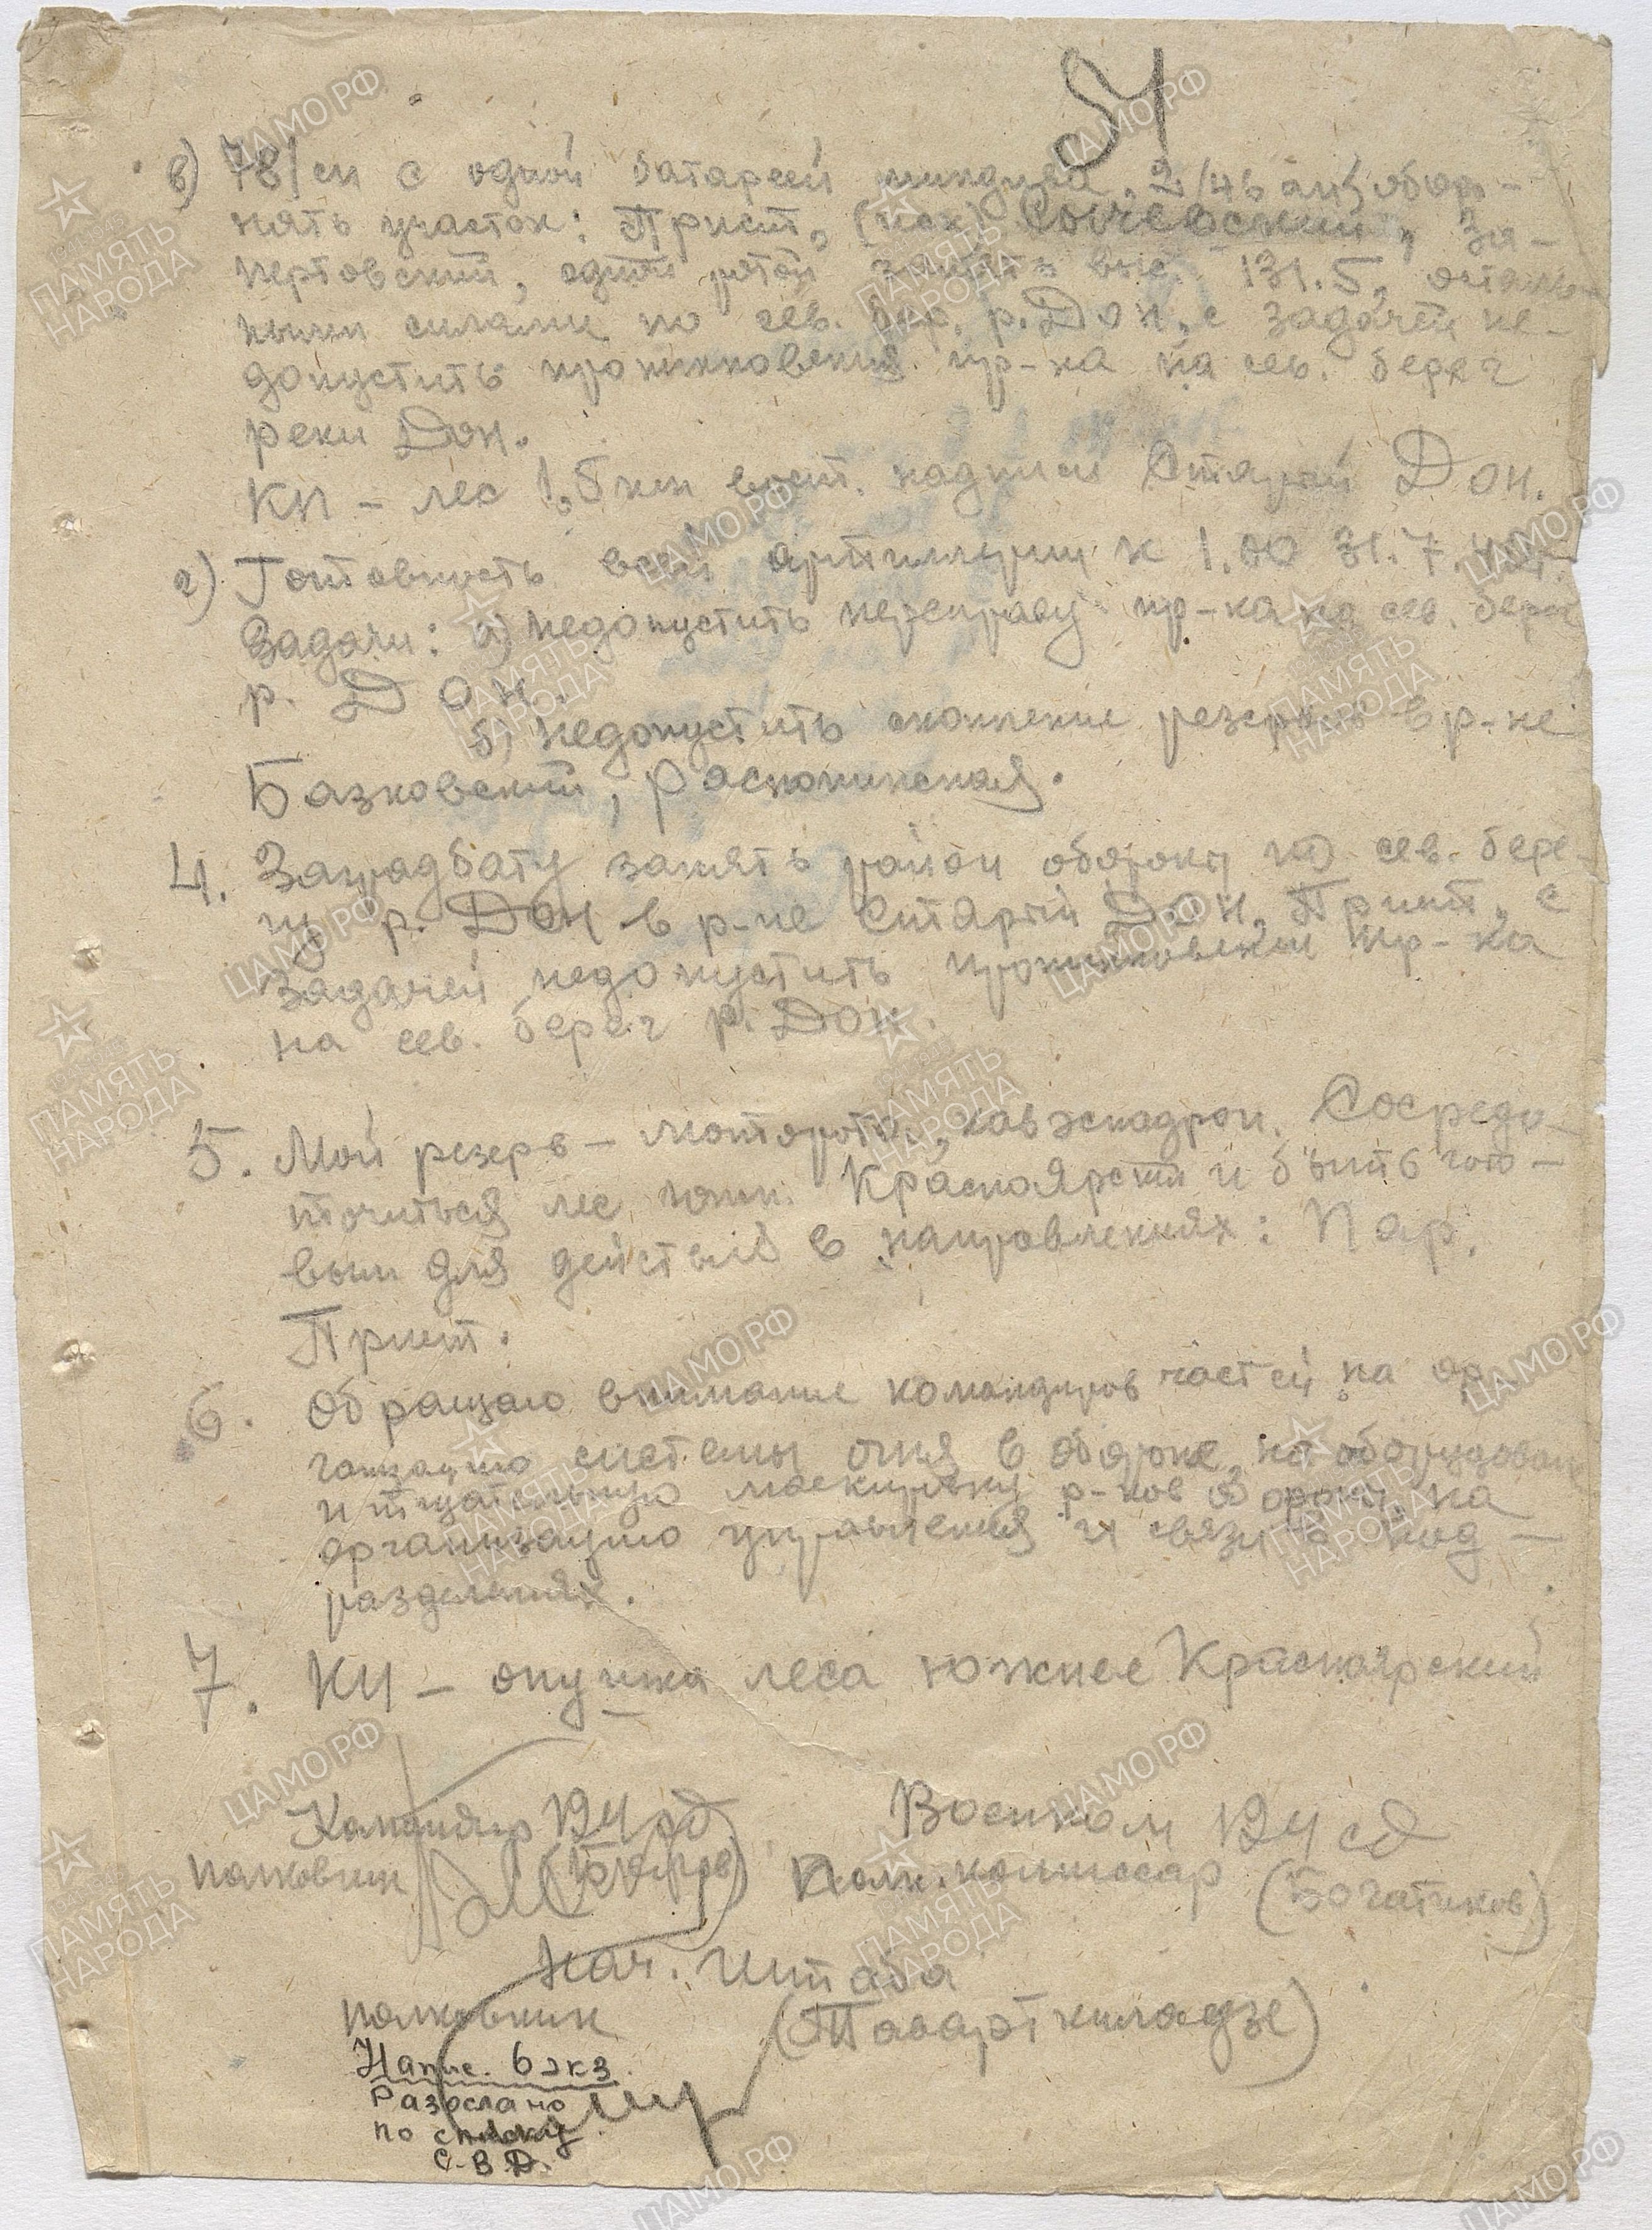 54
в) 781 сп с одной батареей миндива, 2/46 ап, оборо-
нять участок: Прист., (иск) Сычевский, За-
пертовский, одной ротой занять выс. 131.5, осталь-
ными силами по сев. бер. р. Дон, с задачей не-
допустить проникновения пр-ка на сев. берег
реки Дон.
КП – лес 1,5 км вост. надписи Старый Дон.
г) Готовность всей артиллерии к 1.00 31.7.42г.
Задачи: а) недопустить переправу пр-ка на сев. берег
р. Дон.
б) недопустить скопление резервов в р-не
Базковский, Распопинская.
4. Заградбату занять район обороны по сев. бере-
гу р. Дон в р-не Старый Дон, Прист., с
задачей недопустить проникновения пр-ка
на сев. берег р. Дон.
5. Мой резерв – моторота, кавэскадрон. Сосредо-
точиться лес южн. Красноярский и быть гото-
вым для действий в направлениях: Пар.
Прист.
6. Обращаю внимание командиров частей на ор-
ганизацию системы огня в обороне, на оборудован
и тщательную маскировку р-нов обороны, на
организацию управления и связи в под-
разделениях.
7. КП – опушка леса южнее Красноярский
Командир 124 сд Военком 124 сд
полковник Полк. комиссар (Богатиков)
Нач. Штаба
полковник (Таварткиладзе)
Напис. 6 экз.
Разослано
по списку
С.В.Д.
ЦАМО.РФ
ПАМЯТЬ
НАРОДА